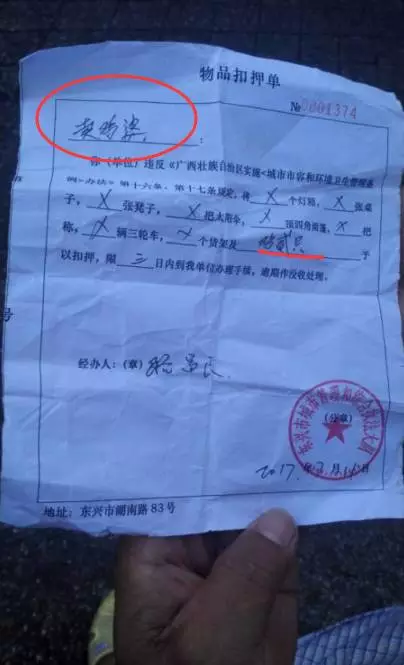 物品扣押单
№0001374
：
你（单位）违反《广西壮族自治区实施<城市市容和环境卫生管理条
例>办法》第十六条、第十七条规定，将 X 个灯箱， X 张桌
子， X 张凳子， X 把太阳伞， X 顶四角雨蓬， X 把
称， X 辆三轮车， X 个货架及 鸡贰只 予
以扣押，限 三 日内到我单位办理手续，逾期作没收处理。
经办人：（章）
东兴市城市管理和综合执法大队
（公章）
2017年 月 日
地址：东兴市湖南路83号